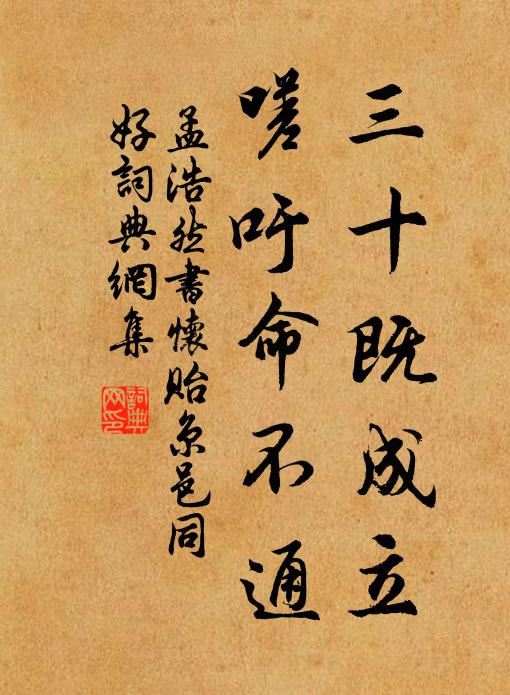 三十既成立
嗟吁命不通
孟浩然書懷貽京邑同
好詞典網集
詞典网印